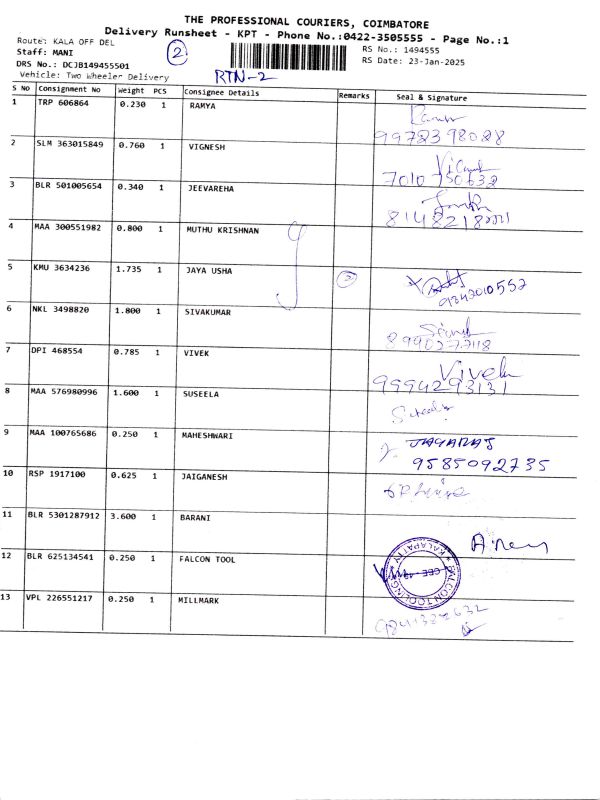 THE PROFESSIONAL COURIERS, COIMBATORE
Delivery Runsheet - KPT - Phone No.:0422-3505555 - Page No.:1
Route: KALA OFF DEL
Staff: MANI
2
RS No.: 1494555
DRS No.: DCJB149455501
RS Date: 23-Jan-2025
Vehicle: Two Wheeler Delivery
RTN-2
S No Consignment No Weight PCS Consignee Details Remarks Seal & Signature
1 TRP 606864 0.230 1 RAMYA
9978398088
2 SLM 363015849 0.760 1 VIGNESH
7010750632
3 BLR 501005654 0.340 1 JEEVAREHA
4 MAA 300551982 0.800 1 MUTHU KRISHNAN
5 KMU 3634236 1.735 1 JAYA USHA 2
9342010552
6 NKL 3498820 1.800 1 SIVAKUMAR
7 DPI 468554 0.785 1 VIVEK Vivek
9994293131
8 MAA 576980996 1.600 1 SUSEELA
9 MAA 100765686 0.250 1 MAHESHWARI JAYARAJ
9585092735
10 RSP 1917100 0.625 1 JAIGANESH
11 BLR 5301287912 3.600 1 BARANI
12 BLR 625134541 0.250 1 FALCON TOOL
FALCON TOOLINGS KALAPATTY
13 VPL 226551217 0.250 1 MILLMARK